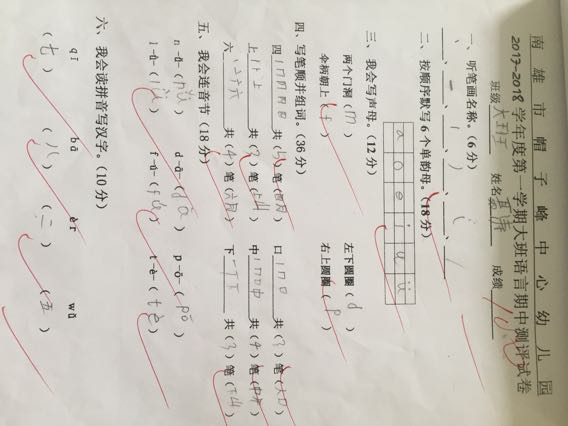 南雄市帽子峰中心幼儿园
2017-2018学年度第一学期大班语言期中测评试卷
班级 大 姓名 成绩 100
一、听笔画名称。(6分)
、 、 、 、 、
二、按顺序默写6个单韵母。(18分)
a o e i u ü
三、我会写声母。(12分)
两个门洞(m) 左下圆圈(d)
伞柄朝上(f) 右上圆圈(p)
四、写笔顺并组词。(36分)
四 共(5)笔() 口 共(3)笔(大口)
上 共(3)笔(上山) 中 共(4)笔()
六 共(4)笔() 下 共(3)笔(下山)
五、我会连音节(18分)
n-ǚ-(nǚ) d-à-(dà) p-ō-(pō)
l-ǜ-(lǜ) f-ú-(fú) t-è-(tè)
六、我会读拼音写汉字。(10分)
qī bā èr wǔ
(七) (八) (二) (五)